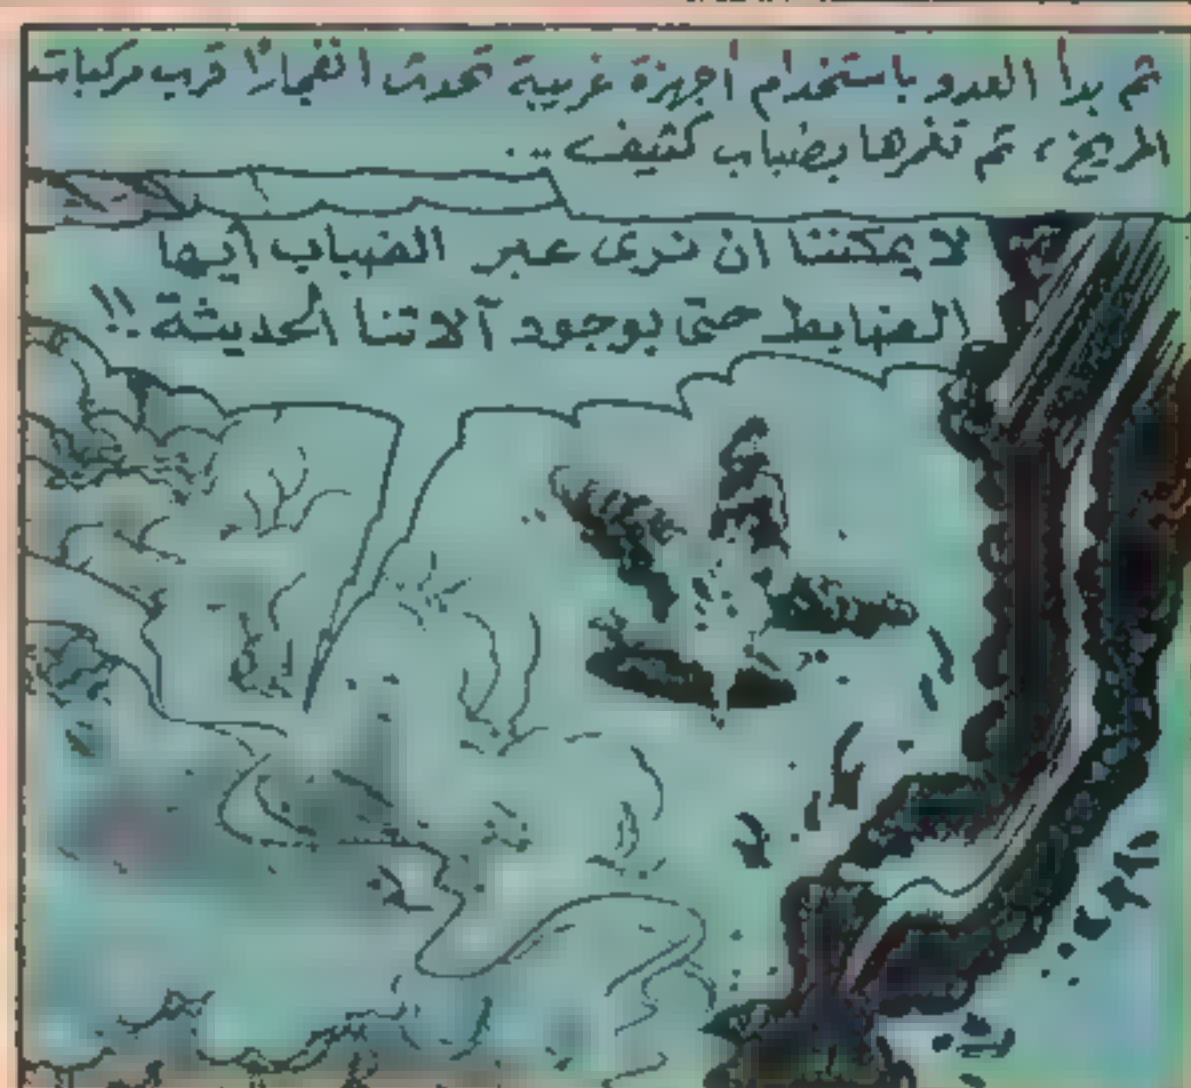 ثم بدأ العدو باستخدام أجهزة غريبة تحدث انفجارًا قرب مركبات
المريخ، ثم تغمرها بضباب كثيف ..
لا يمكننا ان نرى عبر الضباب أيها
الضابط حتى بوجود آلاتنا الحديثة !!